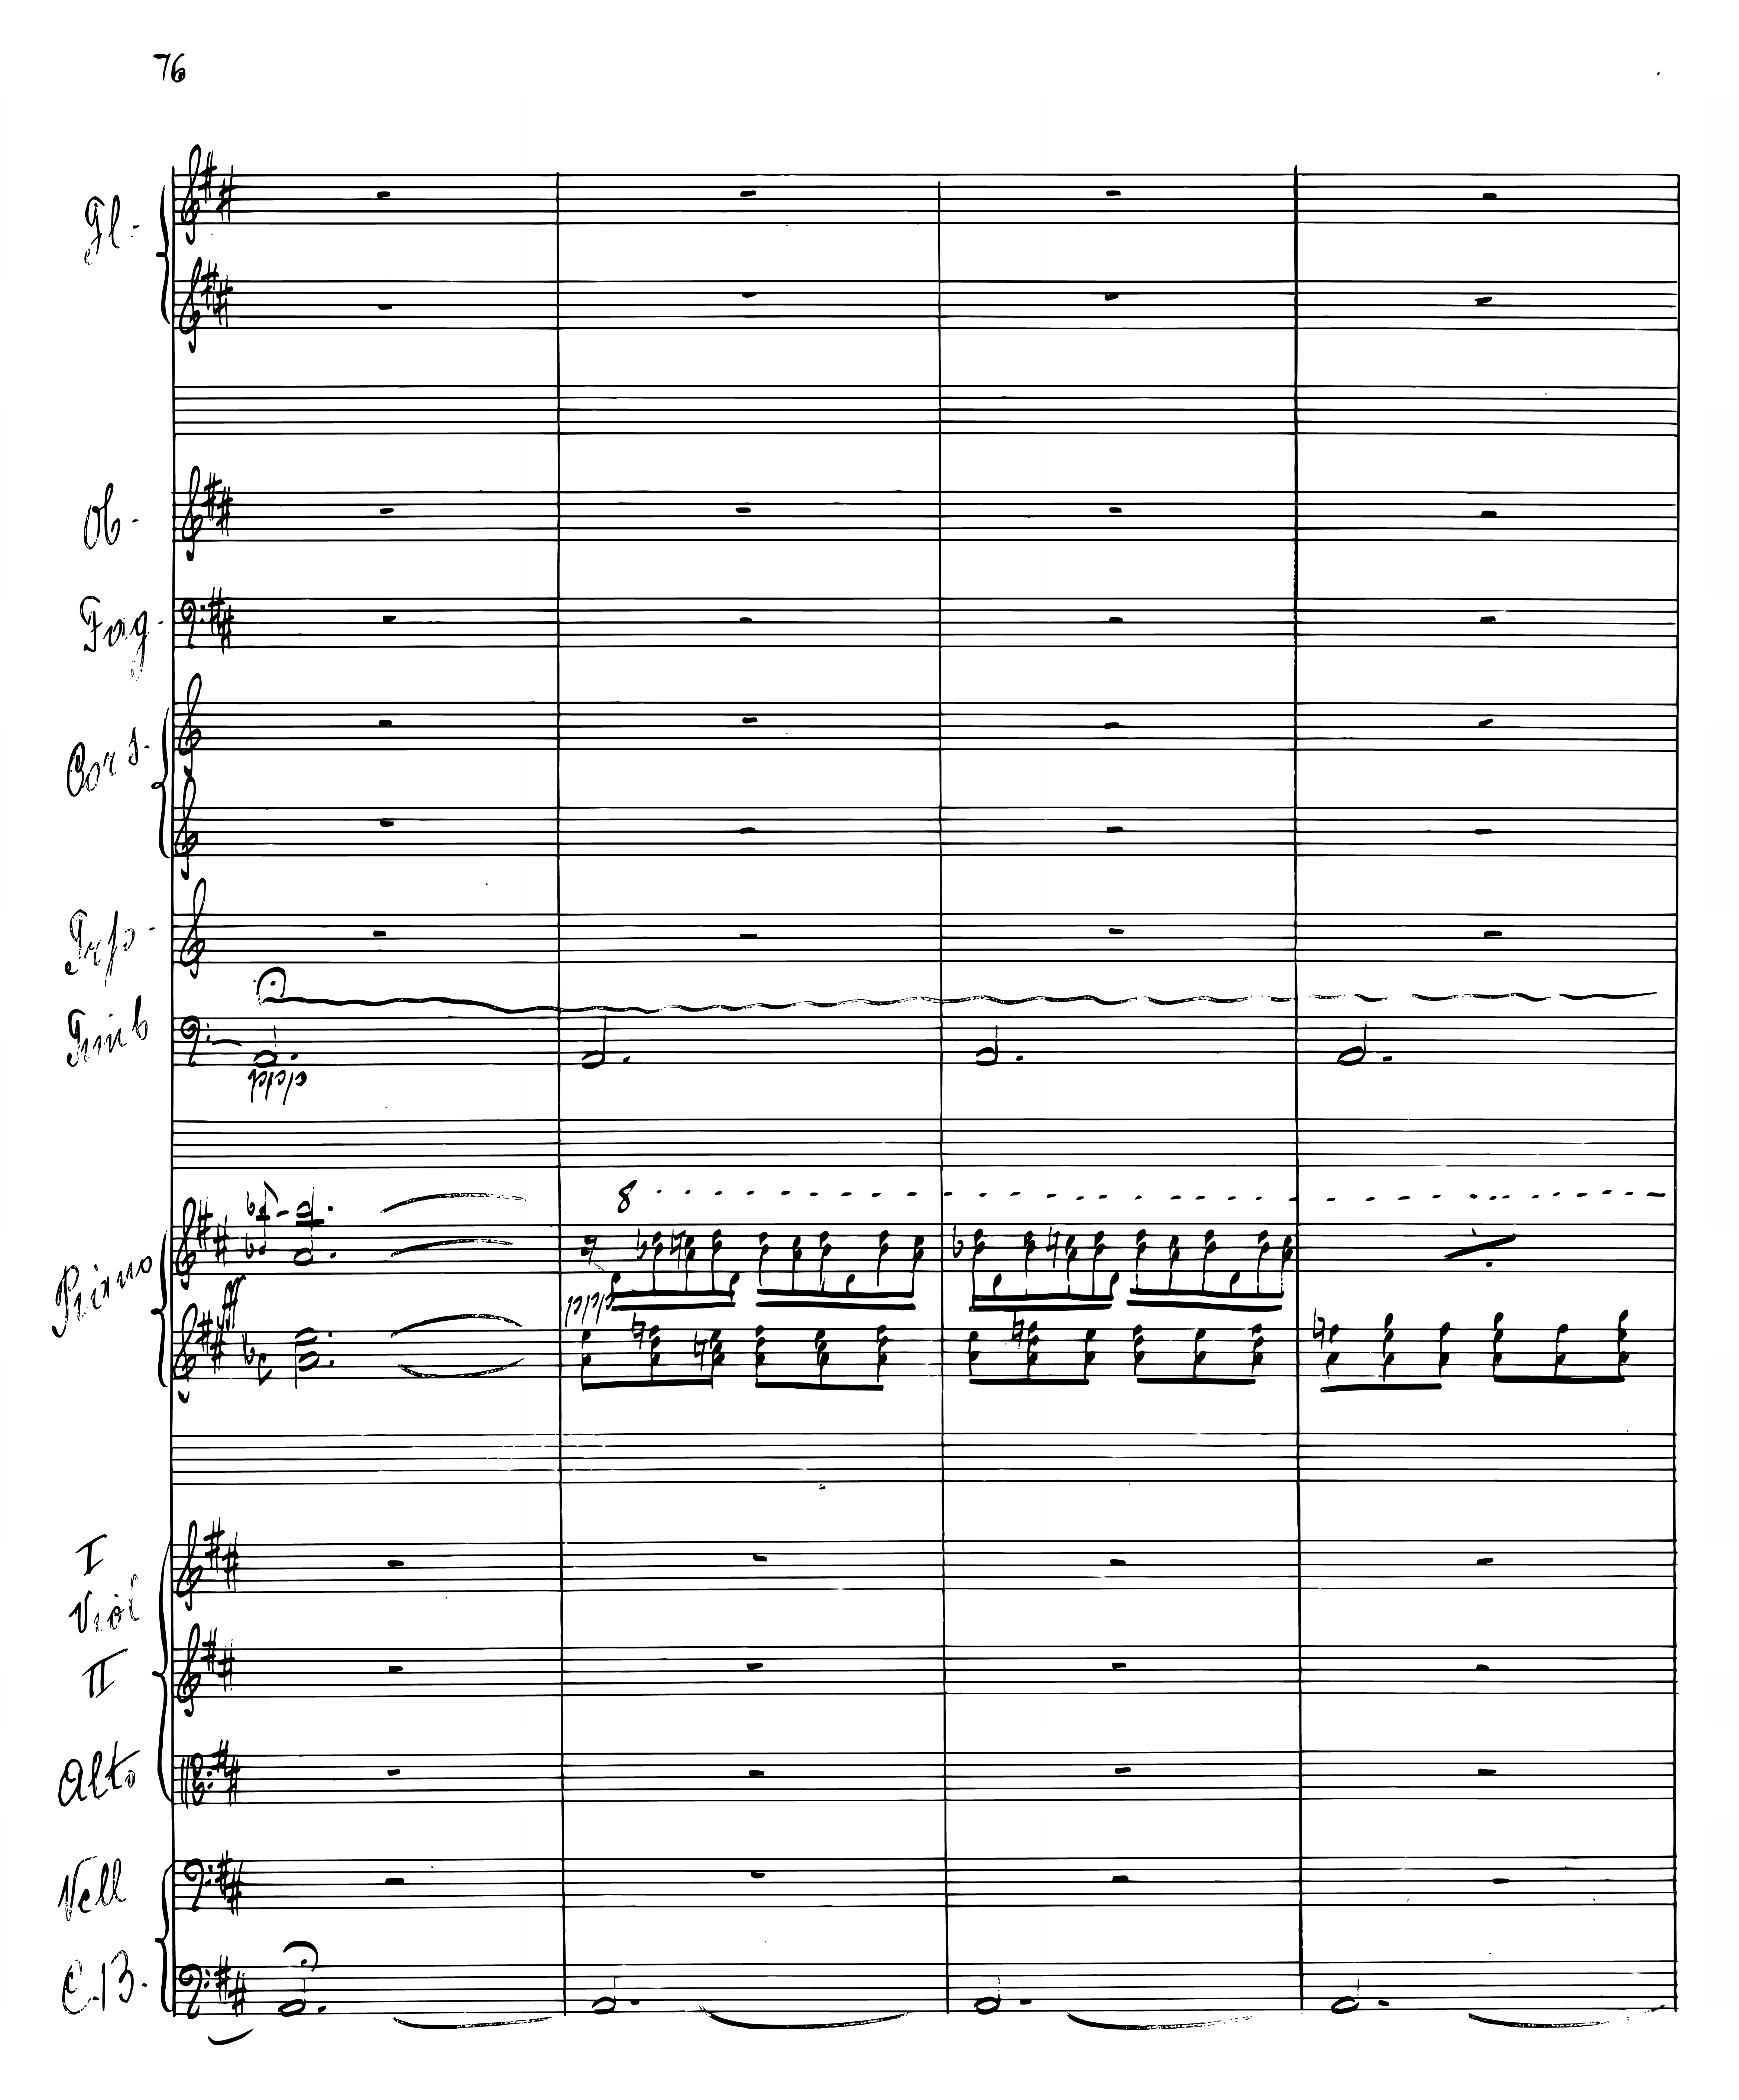 76
Fl.
Ob.
Fag.
Cors.
Trp.
Timb
pppp
8
Piano
ff
ppp
I
Viol
II
Alto
Vcll
C.B.